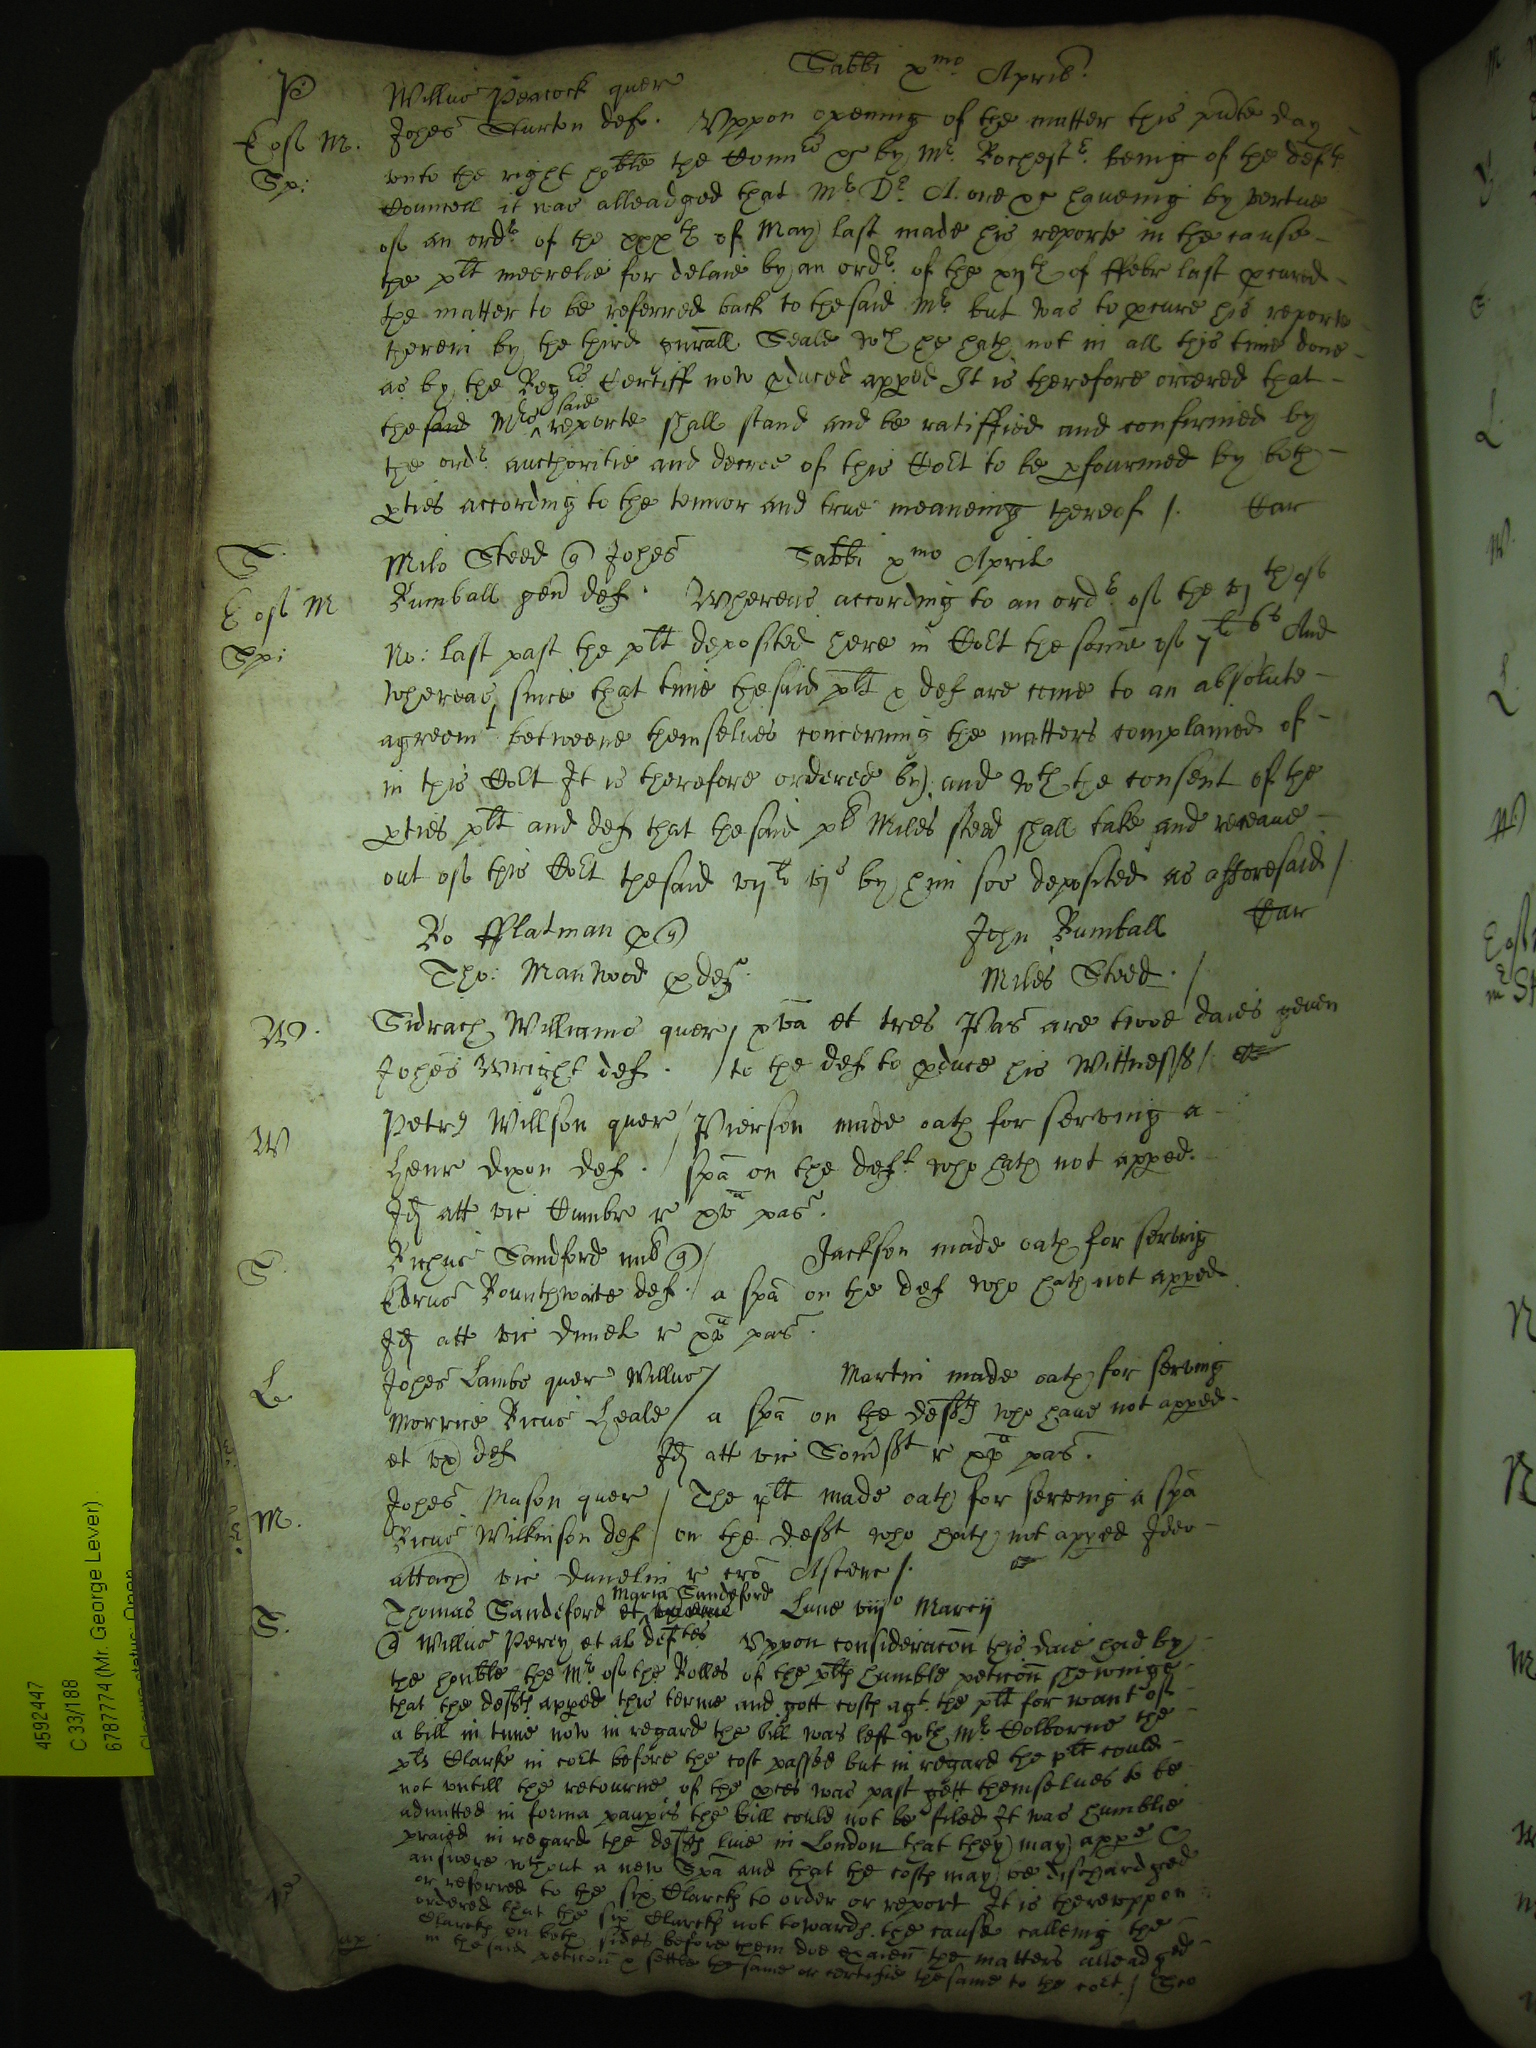 Sabbi xmo Aprilis
P Willus Peacock quer
Eost M. Johes Sturton def. Uppon opening of the matter this pnte day
Sp: unto the right hoble the Comrs &c by Mr Rochestr being of the defts
Councell it was alleadged that Mr Dr A. one &c haveing by vertue
of an ordr of the xxxth of May last made his reporte in the cause
the plt meerelie for delaie by an ordr of the xijth of ffebr last pcured
the matter to be referred back to the said Mr but was to pcure his reporte
therein by the third gnrall Seale wch he hath not in all this time done
as by the Regrs Certiff now pduced apped It is therefore ordered that
the said Mrs said reporte shall stand and be ratiffied and confirmed by
the ordr authoritie and decree of this Cort to be pfourmed by both
pties according to the tennor and true meaneing thereof /. Car
S. Milo Steed q Johes Sabbi xmo Aprilis
Eost M Rumball gen def. Whereas according to an ordr of the vjth of
Sp: No: last past the plt deposited here in Cort the some of 7l 6s And
whereas since that time the said plt & def are come to an absolute
agreemt betweene themselves concerning the matters complained of
in this Cort It is therefore ordered by and wth the consent of the
pties plt and def that the said plt Miles Steed shall take and receave
out of this Cort the said vijl vjs by him soe deposited as afforesaid /
Ro fflatman p q John Rumball Car
Tho: Manwood p def. Miles Steed /
W. Sidrach Williams quer / xva et tres Pas are twoe daies given
Johes Wright def. / to the def to pduce his Wittnesses /
W Petrus Willson quer / Pierson made oath for serving a
Henr Dixon def. / spa on the deft who hath not apped.
Id att vic Cumbr r xva pas.
S. Richus Sandford mil q / Jackson made oath for serving
Edrus Rounthwaite def. / a spa on the def who hath not apped
Id att vic Dunel r xva pas.
L Johes Lambe quer Willus / Martin made oath for serving
Morrice Ricus Heale / a spa on the defts who have not apped
et ux def Id att vic Somst r xva pas.
M. Johes Mason quer / The plt made oath for serving a spa
Ricus Wilkinson def / on the deft who hath not apped Ideo
attach vic Dunelm r cro Ascenc /.
S. Thomas Sandeford et Maria Sandeford Lune viijo Marcij
q Willus Percy et al deftes Uppon consideracon this daie had by
the honble the Mr of the Rolles of the plts humble peticon shewinge
that the defts apped this terme and gott costs agt the plt for want of
a bill in time now in regard the bill was left wth Mr Colborne the
plts Clarke in cort before the cost passed but in regard the plt could
not untill the retourne of the pces was past gett themselves to be
admitted in forma paupis the bill could not be filed It was humblie
praied in regard the defts live in London that they may appe &
answere wthout a new Spa and that the costs may be dischardged
or referred to the six Clarcks to order or report It is thereuppon
ordered that the six Clarcks not towards the cause calleing the
Clarcks on both sides before them doe examen the matters alleadged
in the said peticon & settle the same or certifie the same to the cort. /
4592447
C 33/188
6787774 (Mr. George Lever)